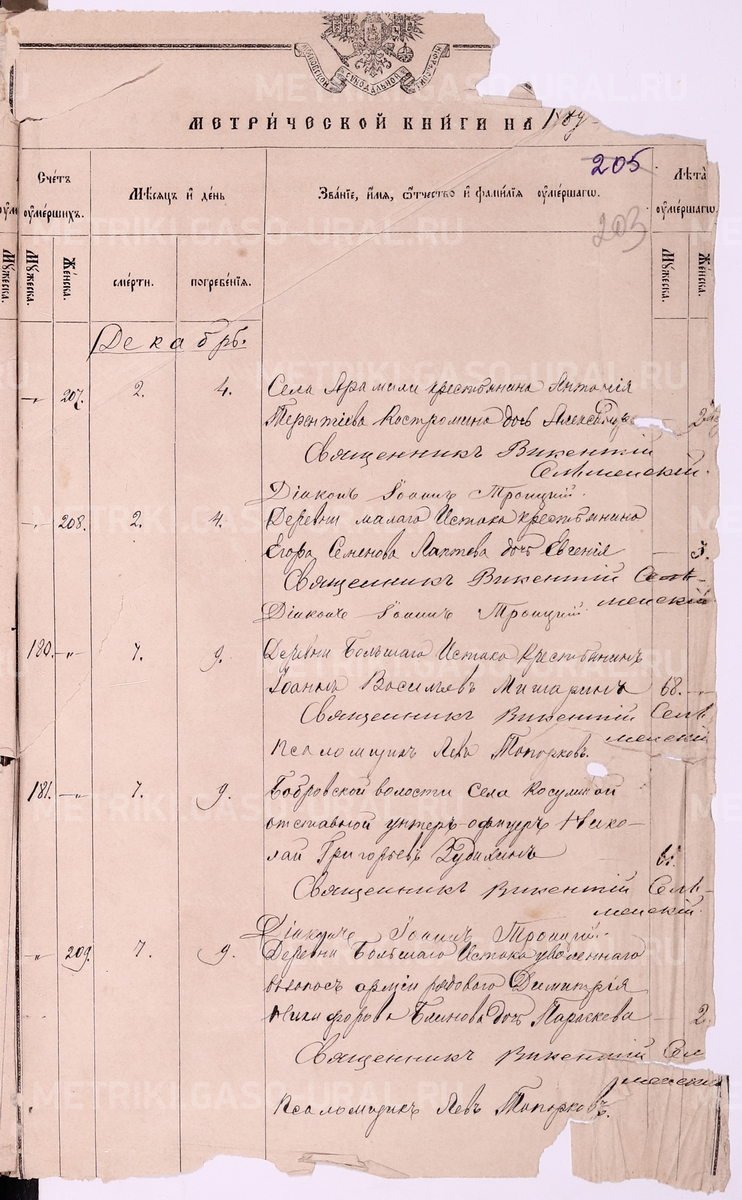 МОСКОВСКОЙ СѴНОДАЛЬНОЙ ТИПОГРАФІИ
МЕТРИ́ЧЕСКОЙ КНИ́ГИ НА
205
203
Сче́тъ ᲂу҆ме́ршихъ.
Мѣ́сяцъ и҆ де́нь
Зва́нїе, и҆́мя, ѻ҆́тчество и҆ фами́лїя ᲂу҆ме́ршагѡ.
Лѣ́та ᲂу҆ме́ршагѡ.
Мꙋ́жеска.
Мꙋ́жеска.
Же́нска.
сме́рти.
погребе́нїя.
Мꙋ́жеска.
Же́нска.
Декабрь.
207. 2. 4. Села Арамили крестьянина Антонія
Терентіева Костромина дочь
Священникъ Викентій
Селѣменскій.
Діаконъ Іоаннъ Троицкій.
208. 2. 4. Деревни малаго Истока крестьянина
Егора Семенова Лаптева дочь Евгенія — 5.
Священникъ Викентій Селѣ-
менскій
Діаконъ Іоаннъ Троицкій.
180. — „ 7. 9. Деревни Большаго Истока Крестьянинъ
Іоаннъ Васильевъ Мишаринъ 68. — „
Священникъ Викентій Селѣ-
менскій
Псаломщикъ Левъ Топорковъ.
181. — „ 7. 9. Бобровской волости Села Косулиной
отставной унтеръ офицеръ Нико-
лай Григорьевъ
Священникъ Викентій Селѣ-
менскій.
Діаконъ Іоаннъ Троицкій.
„ 209. 7. 9. Деревни Большаго Истока уволеннаго
арміи рядового Димитрія
Никифорова Блинова дочь Параскева — 2.
Священникъ Викентій Сел
менскій
Псаломщикъ Левъ Топорковъ.
METRIKI.GASO-URAL.RU